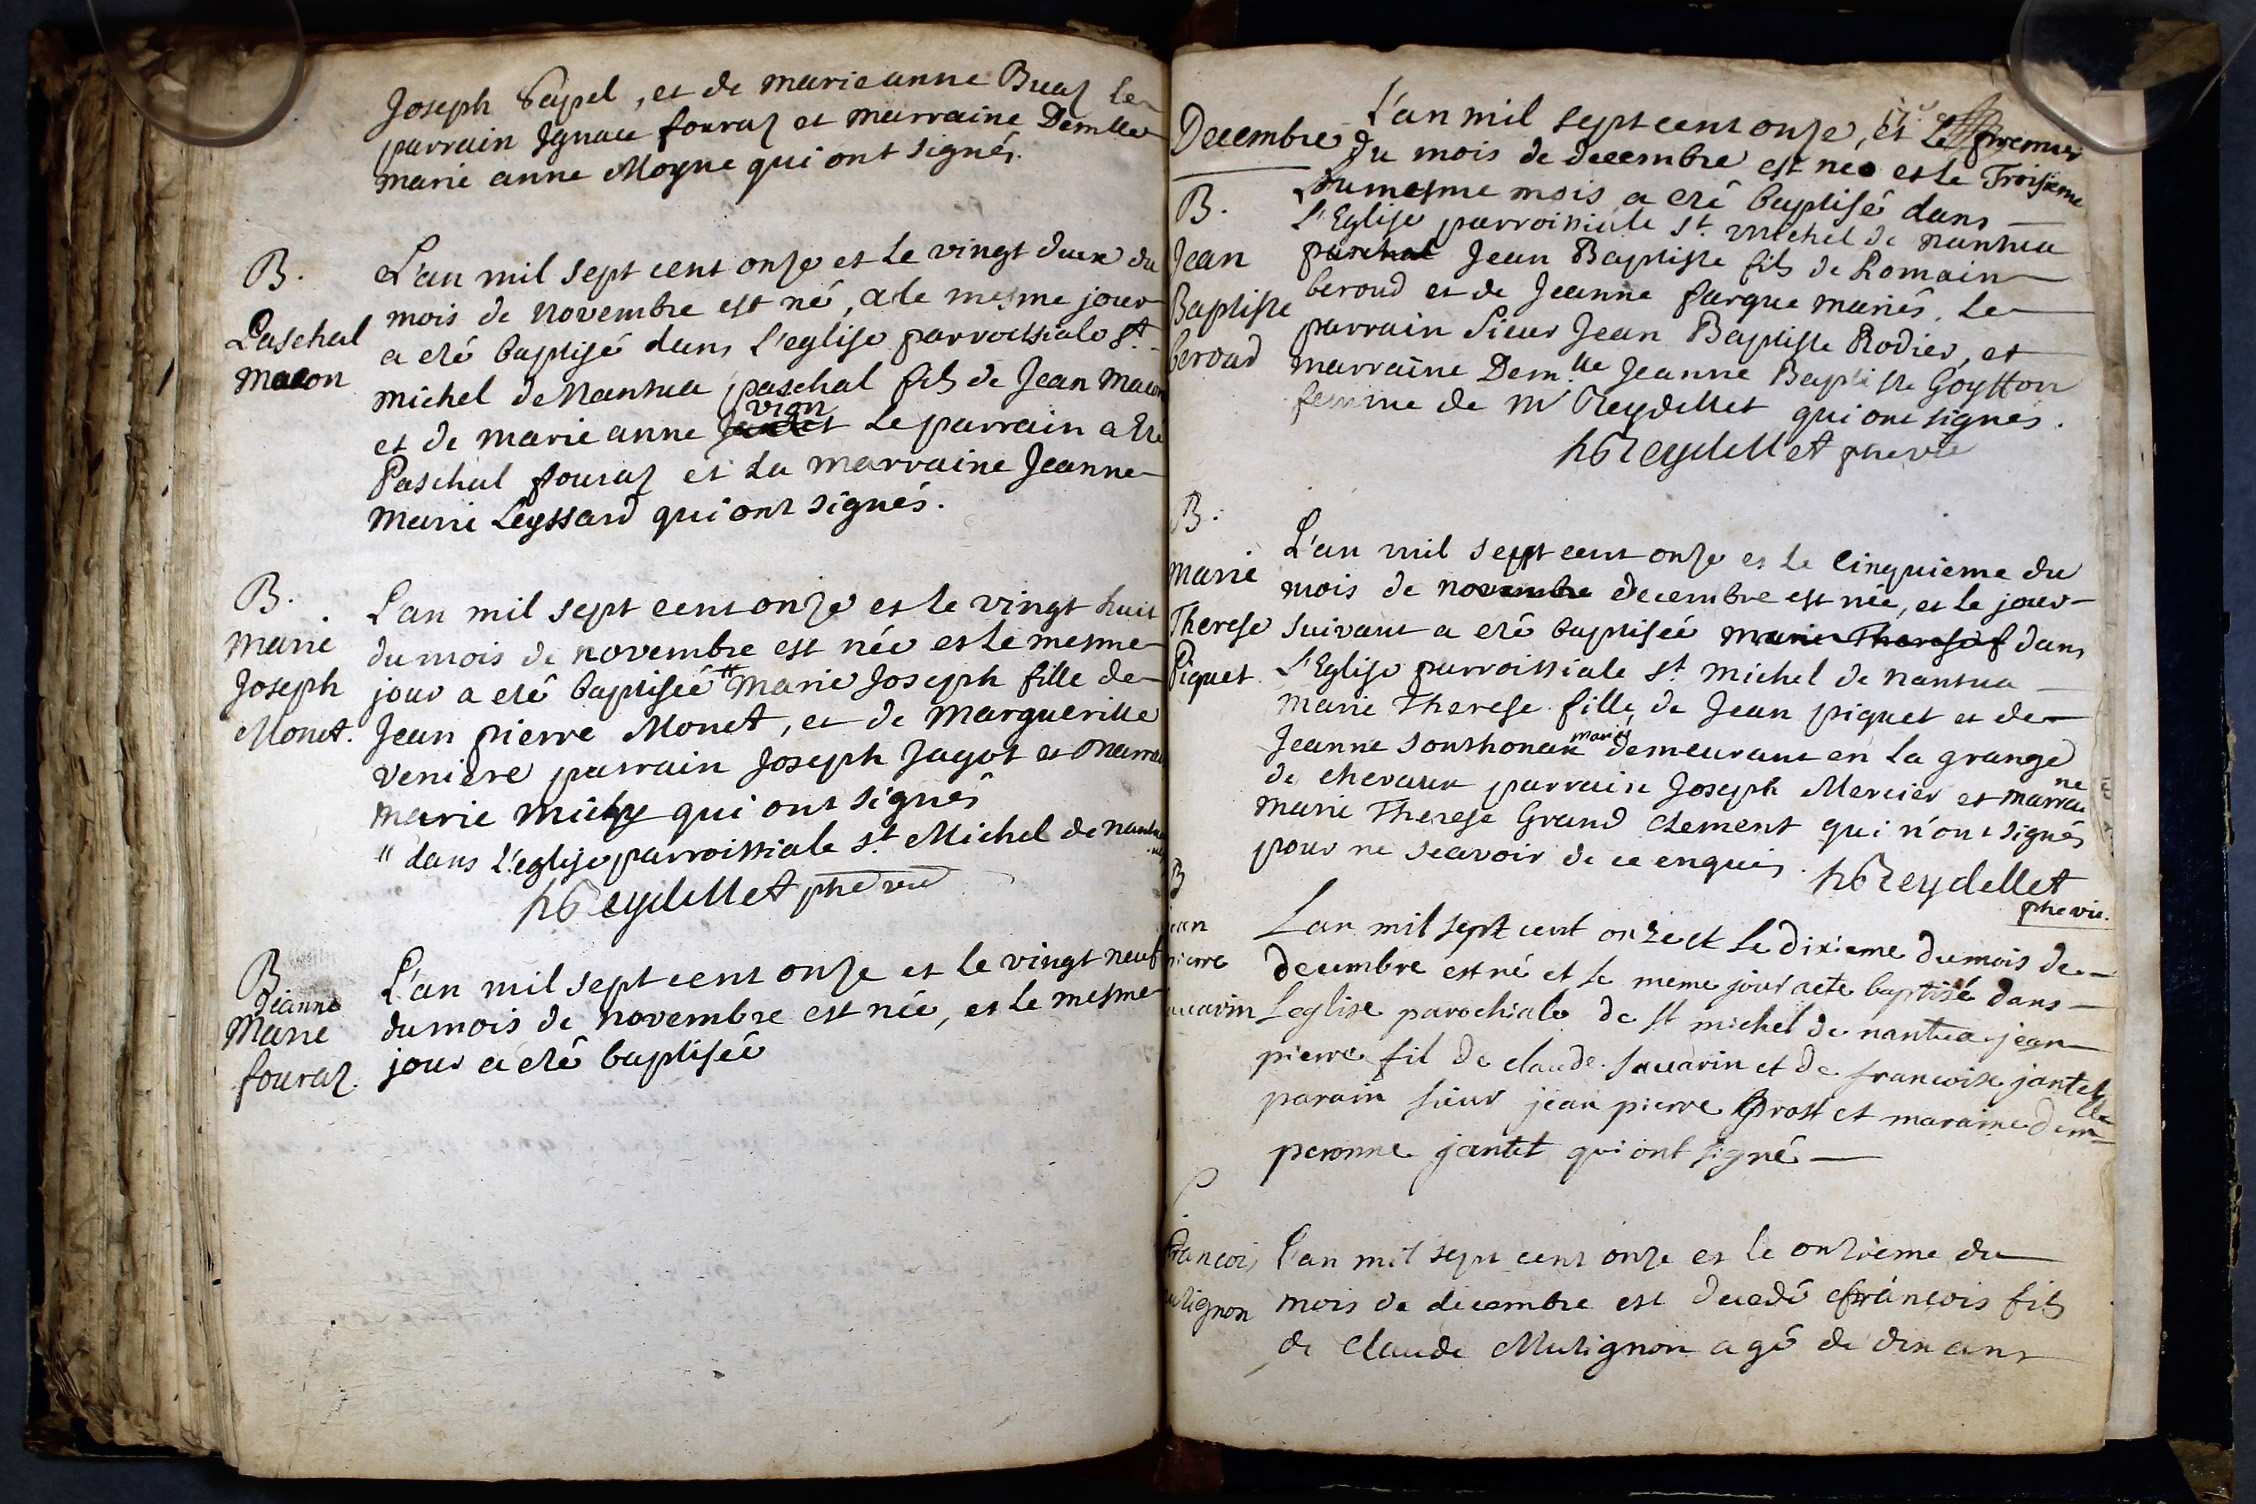 Joseph Sapel, et de marie anne Buaz le
parrain Ignace fouraz et marraine Demlle
marie anne Moyne qui ont signés.
B.
Paschal
Macon
L'an mil sept cent onze et le vingt deux du
mois de novembre est né, a le mesme jour
a eté baptisé dans l'eglise parroissiale St.
michel de Nantua paschal fils de Jean Macon
et de marie anne vion le parrain a eté
Paschal fouraz et la marraine Jeanne
Marie Leyssard qui ont signés.
B.
Marie
Joseph
Monet.
L'an mil sept cent onze et le vingt huit
du mois de novembre est née et le mesme
jour a eté baptisée " Marie Joseph fille de
Jean pierre Monet, et de Margueritte
veniere parrain Joseph Jagot et
marie qui ont signés
" dans l'eglise parroissiale st. Michel de nantua
Reydellet pbr vic
B
Jeanne
Marie
fouraz.
L'an mil sept cent onze et le vingt neuf
du mois de novembre est née, et le mesme
jour a eté baptisée
Decembre
L'an mil sept cent onze, et Le premier
du mois de decembre est né et le Troisieme
du mesme mois a eté baptisé dans
L'Eglise parroissiale St. michel de nantua
paschal Jean Baptiste fils de Romain
beroud et de Jeanne fargue mariés. Le
parrain Sieur Jean Baptiste Rodier, et
marraine Dem.lle Jeanne Baptiste Goyffon
femme de Mr Reydellet qui ont signés.
Reydellet pbr vic
B.
Jean
Baptiste
beroud
B.
Marie
Therese
Piquet
L'an mil sept cent onze et le Cinquieme du
mois de novembre decembre est née, et le jour
suivant a eté baptisée marie Therese f dans
L'Eglise parroissiale St. Michel de nantua
Marie Therese fille de Jean piquet et de
Jeanne Southonax mariés demeurant en la grange
de chevaux parrain Joseph Mercier et marraine
Marie Therese Grand Clement qui n'ont signés
pour ne scavoir de ce enquis. Reydellet
pbr vic.
B
jean
pierre
sauarin
Lan mil sept cent onze et le dixieme du mois de
decembre est né et le meme jour a ete baptisé dans
Leglise parochiale de st michel de nantua jean
pierre fil de claude sauarin et de francoise jantet
parain sieur jean pierre Prost et maraine demlle
peronne jantet qui ont signé
françois
Mutignon
L'an mil sept cent onze et le onzieme du
mois de decembre est decedé françois fils
de Claude Mutignon agé de dix ans